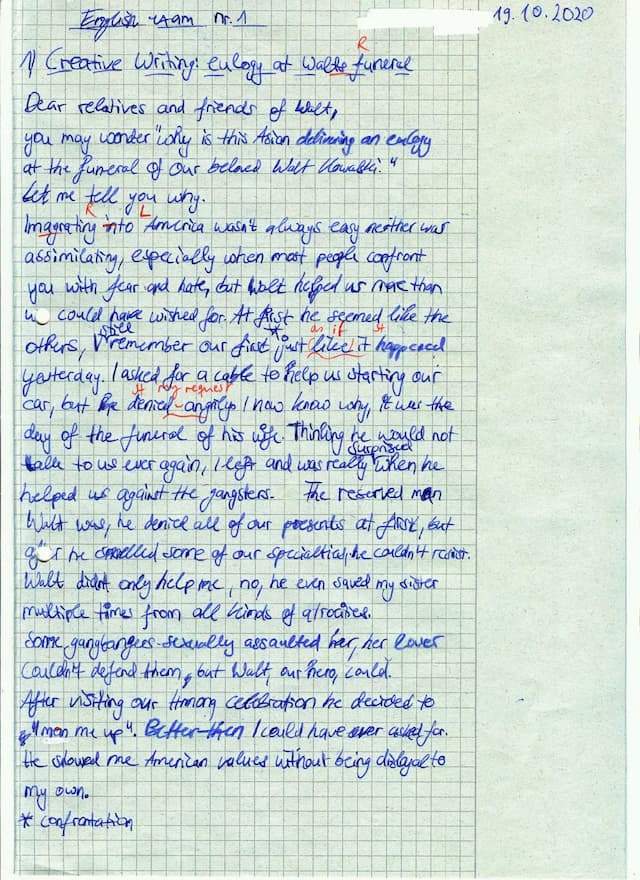 English exam Nr. 1
19.10.2020
R
1) Creative Writing: eulogy at Walts funeral
Dear relatives and friends of Walt,
you may wonder "Why is this Asian delivering an eulogy
at the funeral of our beloved Walt Kowalski."
Let me tell you why.
R L
Imagrating into America wasn't always easy neither was
assimilating, especially when most people confront
you with fear and hate, but Walt helped us more than
we could have wished for. At first he seemed like the
still * as if st
others, I remember our first just like it happened
yesterday. I asked for a cable to help us starting our
st my request
car, but he denied angrily. I now know why, it was the
day of the funeral of his wife. Thinking he would not
surprised
talk to us ever again, I left and was really when he
helped us against the gangsters. The reserved man
Walt was, he denied all of our presents at first, but
after he smelled some of our specialties, he couldn't resist.
Walt didn't only help me, no, he even saved my sister
multiple times from all kinds of atrocities.
Some gangbangers sexually assaulted her, her lover
couldn't defend them, but Walt, our hero, could.
After visiting our Hmong celebration he decided to
"man me up". Better then I could have ever asked for.
He showed me American values without being disloyal to
my own.
* confrontation